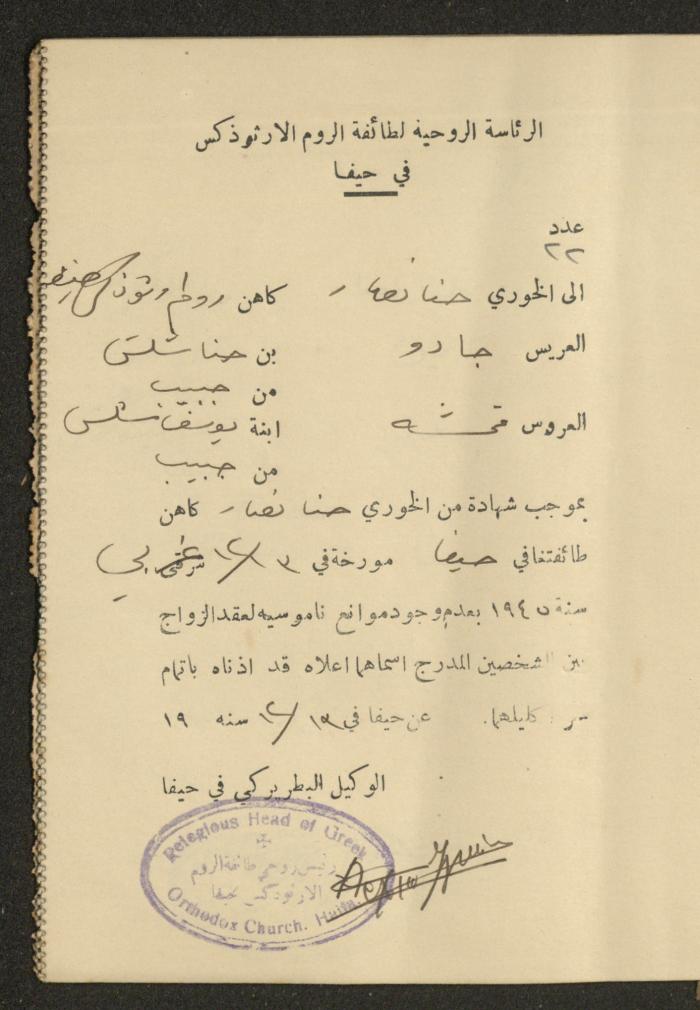 الرئاسة الروحية لطائفة الروم الارثوذكس
في حيفا
عدد
٢٢
الى الخوري حنا نصار كاهن روم ارثوذكس حيفا
العريس جادو بن حنا شلش
من حبيب
العروس ابنة يوسف شلش
من حبيب
بموجب شهادة من الخوري حنا نصار كاهن
طائفتنا في حيفا مورخة في ١٣/١٢ شرقي غربي
سنة ١٩٤٥ بعدم وجود موانع ناموسيه لعقد الزواج
بين الشخصين المدرج اسماهما اعلاه قد اذناه باتمام
كليلهما. عن حيفا في ١٣/١٢ سنه ١٩
الوكيل البطريركي في حيفا
Relegious Head of Greek
رئيس روحي طائفة الروم
الارثوذكس بحيفا
Orthodox Church. Haifa.